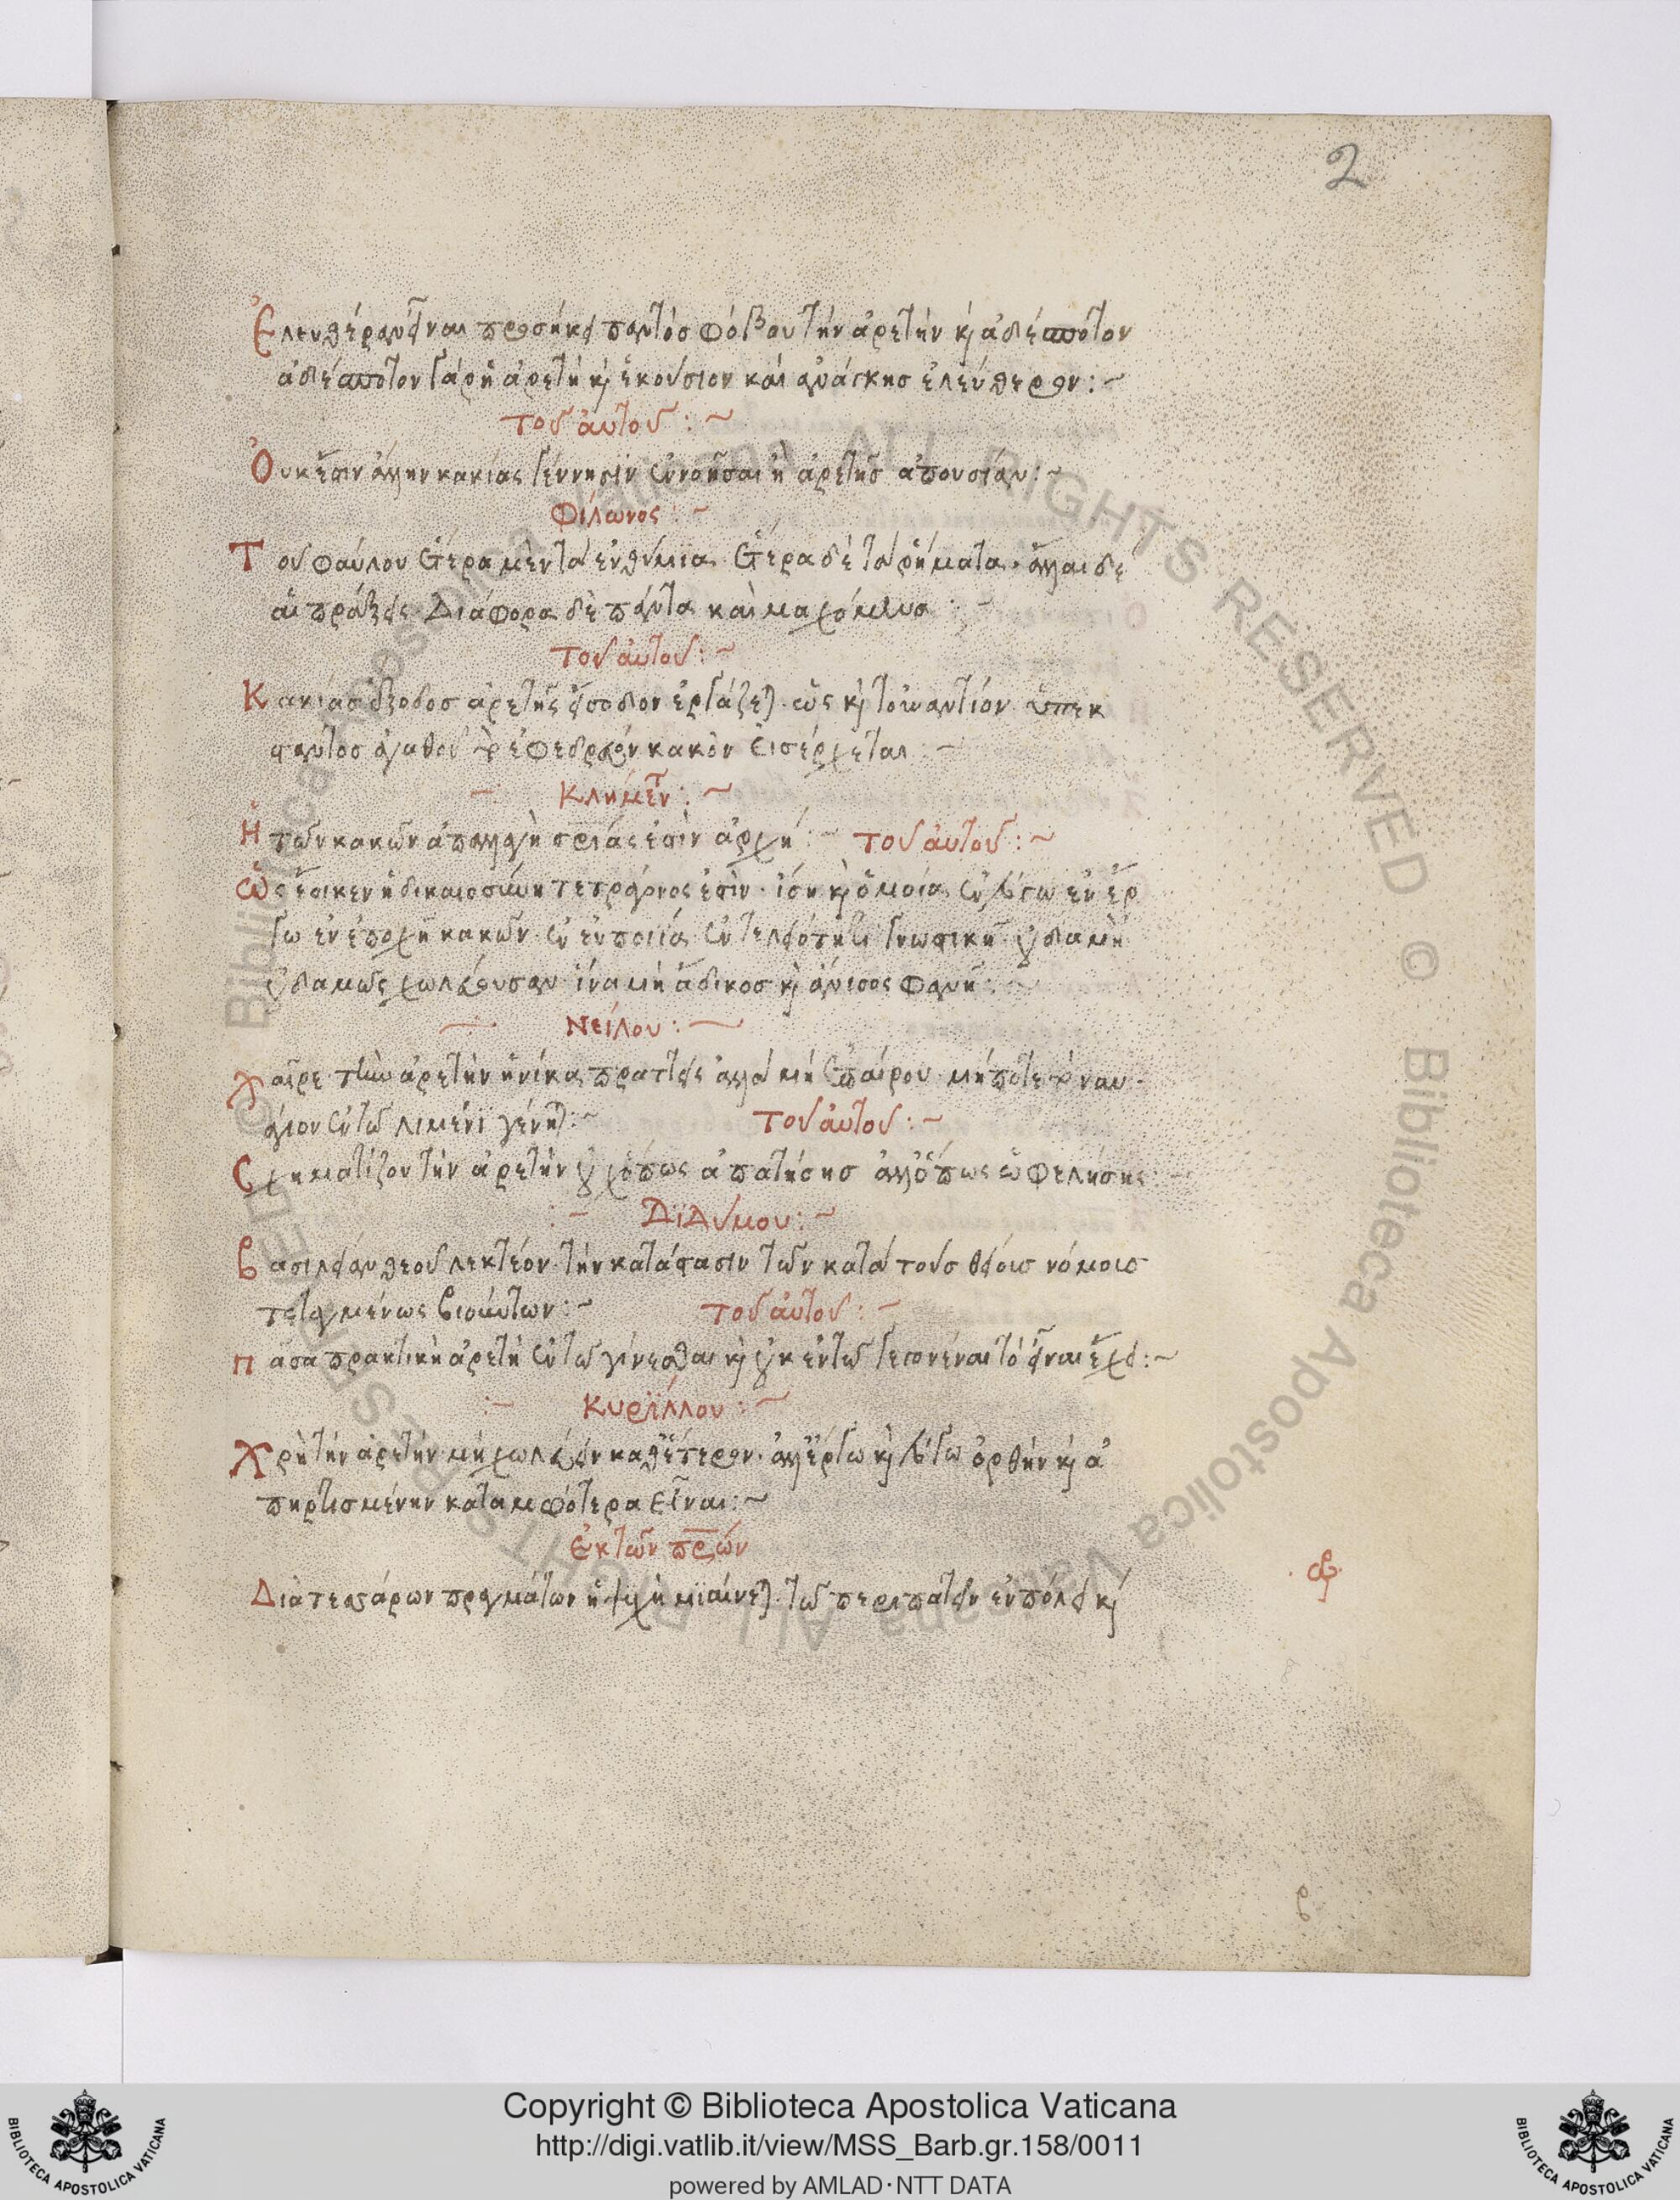 2
Ἐλευθέραν εἶναι προσήκει παντὸς φόβου τὴν ἀρετὴν κ ἀδέσποτον
ἀδέσποτον γὰρ ἡ ἀρετὴ κ ἑκούσιον καὶ ἀνάγκης ἐλεύθερον :~
τοῦ αὐτοῦ :~
Οὐκ ἔστιν ἄλλην κακίας γέννησιν ἐννοῆσαι ἢ ἀρετῆς ἀπουσίαν :~
Φίλωνος :~
Τοῦ φαύλου ἕτερα μὲν τὰ ἐνθύμια. ἕτερα δὲ τὰ ῥήματα. ἄλλαι δὲ
αἱ πράξεις Διάφορα δὲ πάντα καὶ μαχόμενα :~
τοῦ αὐτοῦ :~
Κακίας ἔξοδος ἀρετῆς εἴσοδον ἐργάζεται. ὡς κ τοὐναντίον ὑπεκ
στάντος ἀγαθοῦ τὸ ἐφεδρεῦον κακὸν εἰσέρχεται :~
Κλήμεντ :~
Ἡ τῶν κακῶν ἀπαλλαγὴ σριάς ἐστὶν ἀρχή :~ τοῦ αὐτοῦ :~
Ὡς ἔοικεν ἡ δικαιοσύνη τετράγωνος ἐστὶν. ἴση κ ὁμοία ἐν λόγω ἐν ἔρ
γω ἐν ἐποχῇ κακῶν ἐν εὐποιία ἐν τελειότητι γνωστικῇ οὐδαμῇ
οὐδαμῶς χωλεύουσαν ἵνα μὴ ἄδικος κ ἄνισος φανῇ :~
Νείλου :~
Χαῖρε τὴν ἀρετὴν ἡνίκα πράττεις ἀλλὰ μὴ ἐπαίρου μήποτε τὸ ναυ-
άγιον ἐν τῶ λιμένι γένηται :~ τοῦ αὐτοῦ :~
Σχηματίζου τὴν ἀρετὴν οὐχ ὅπως ἀπατήσης ἀλλ' ὅπως ὠφελήσης
:~ Διδύμου :~
Βασιλείαν θεοῦ λεκτέον τὴν κατάστασιν τῶν κατὰ τοὺς θείους νόμους
τεταγμένως βιούντων :~ τοῦ αὐτοῦ :~
Πᾶσα πρακτικὴ ἀρετὴ ἐν τῶ γίνεσθαι κ οὐκ ἐν τῶ γεγονέναι τὸ εἶναι ἔχει :~
:~ Κυρίλλου :~
Χρὴ τὴν ἀρετὴν μὴ χωλεύειν καθ' ἕτερον. ἀλλ' ἔργω κ λόγω ὀρθὴν κ ἀ
πηρτισμένην κατ' ἀμφότερα εἶναι :~
ἐκ τῶν πρῶν
Διὰ τεσσάρων πραγμάτων ἡ ψυχὴ μιαίνεται. τῶ περιπατεῖν ἐν πόλει κ
Copyright © Biblioteca Apostolica Vaticana
http://digi.vatlib.it/view/MSS_Barb.gr.158/0011
powered by AMLAD·NTT DATA
BIBLIOTECA APOSTOLICA VATICANA
BIBLIOTECA APOSTOLICA VATICANA